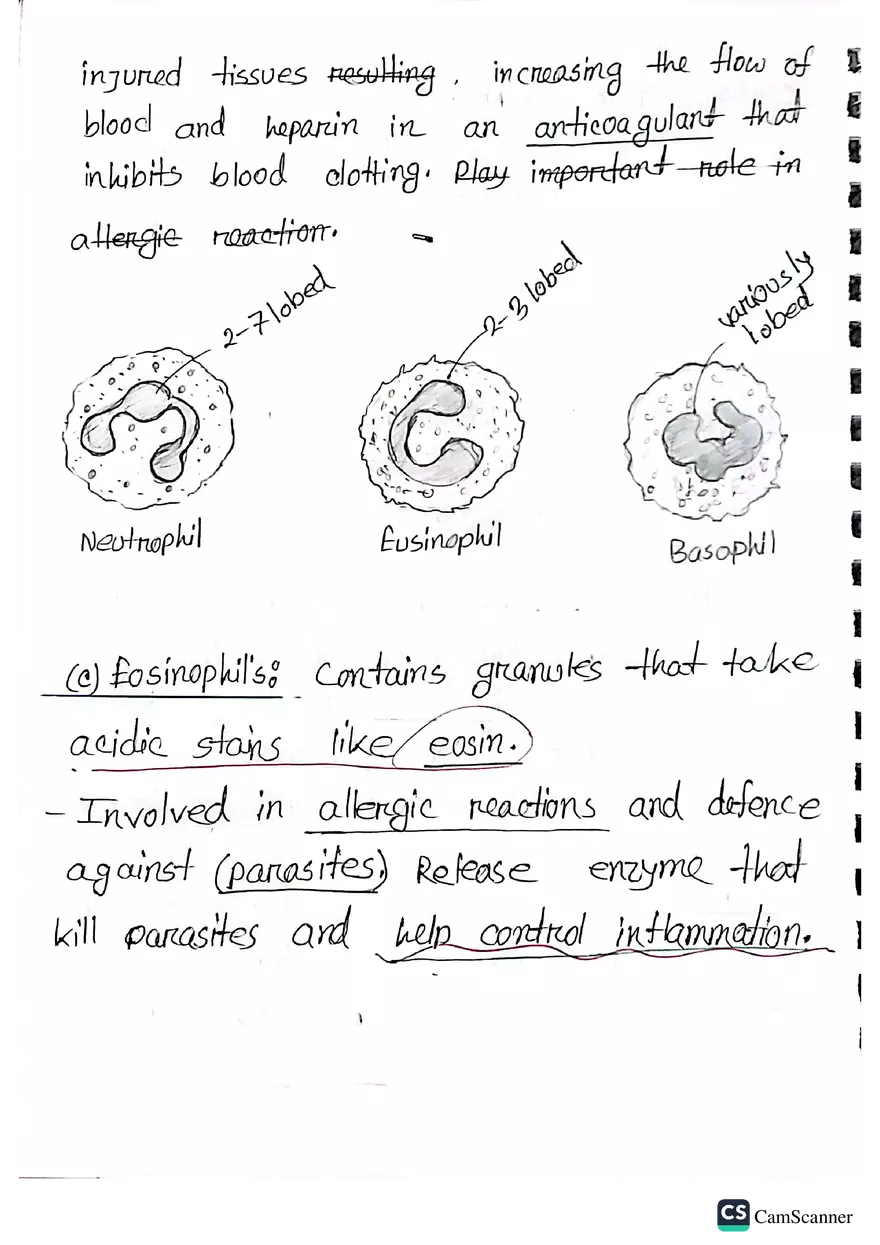 injured tissues resulting, increasing the flow of
blood and heparin in an anticoagulant that
inhibits blood clotting. Play important role in
allergic reaction.
2-7 lobed
2-3 lobed
variously
lobed
Neutrophil
Eusinophil
Basophil
(c) Eosinophil's: Contains granules that take
acidic stains like eosin.
- Involved in allergic reactions and defence
against (parasites.) Release enzyme that
kill parasites and help control inflammation.
CS CamScanner